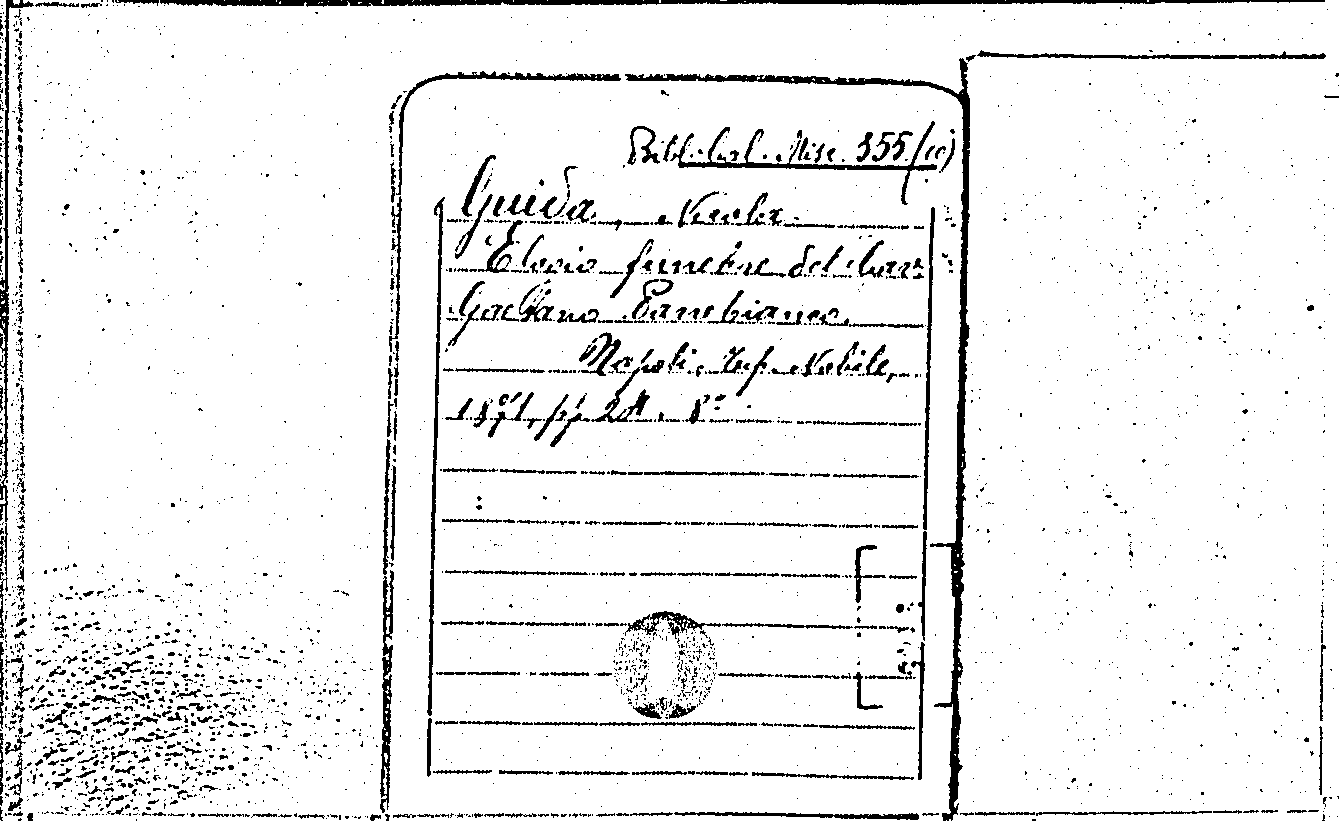 Misc. 355/(10)
Guida, Nicola.
Elogio funebre del Can.
Gaetano Panebianco.
Napoli, Tip. Nobile,
1871, pp. 24. 8°.